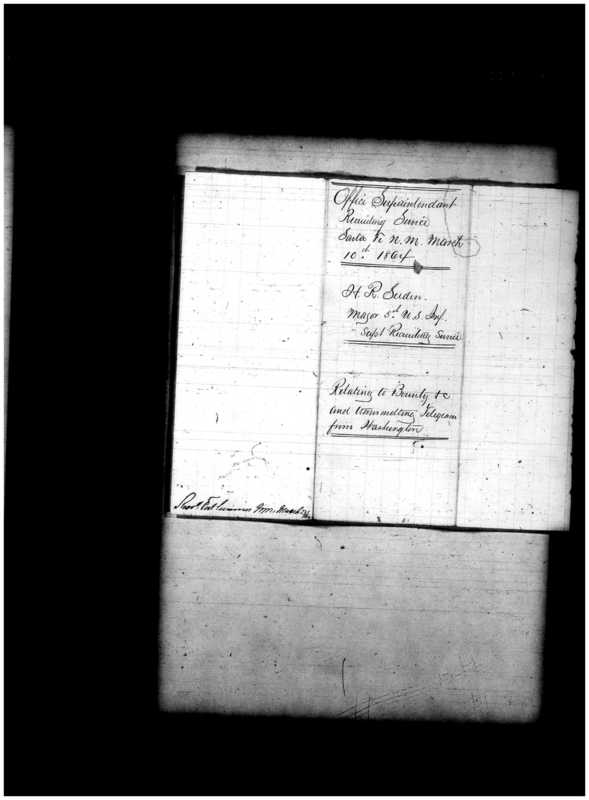 Office Supaintendant
Recruiting Service
Santa Fé N. M. March
10th 1864
H. R. Selden.
Major 5th U.S. Inf.
Supt Recruiting Service
Relating to Bounty &c
and transmitting Telegram
from Washington
Recd. Fort Sumner N.M. March